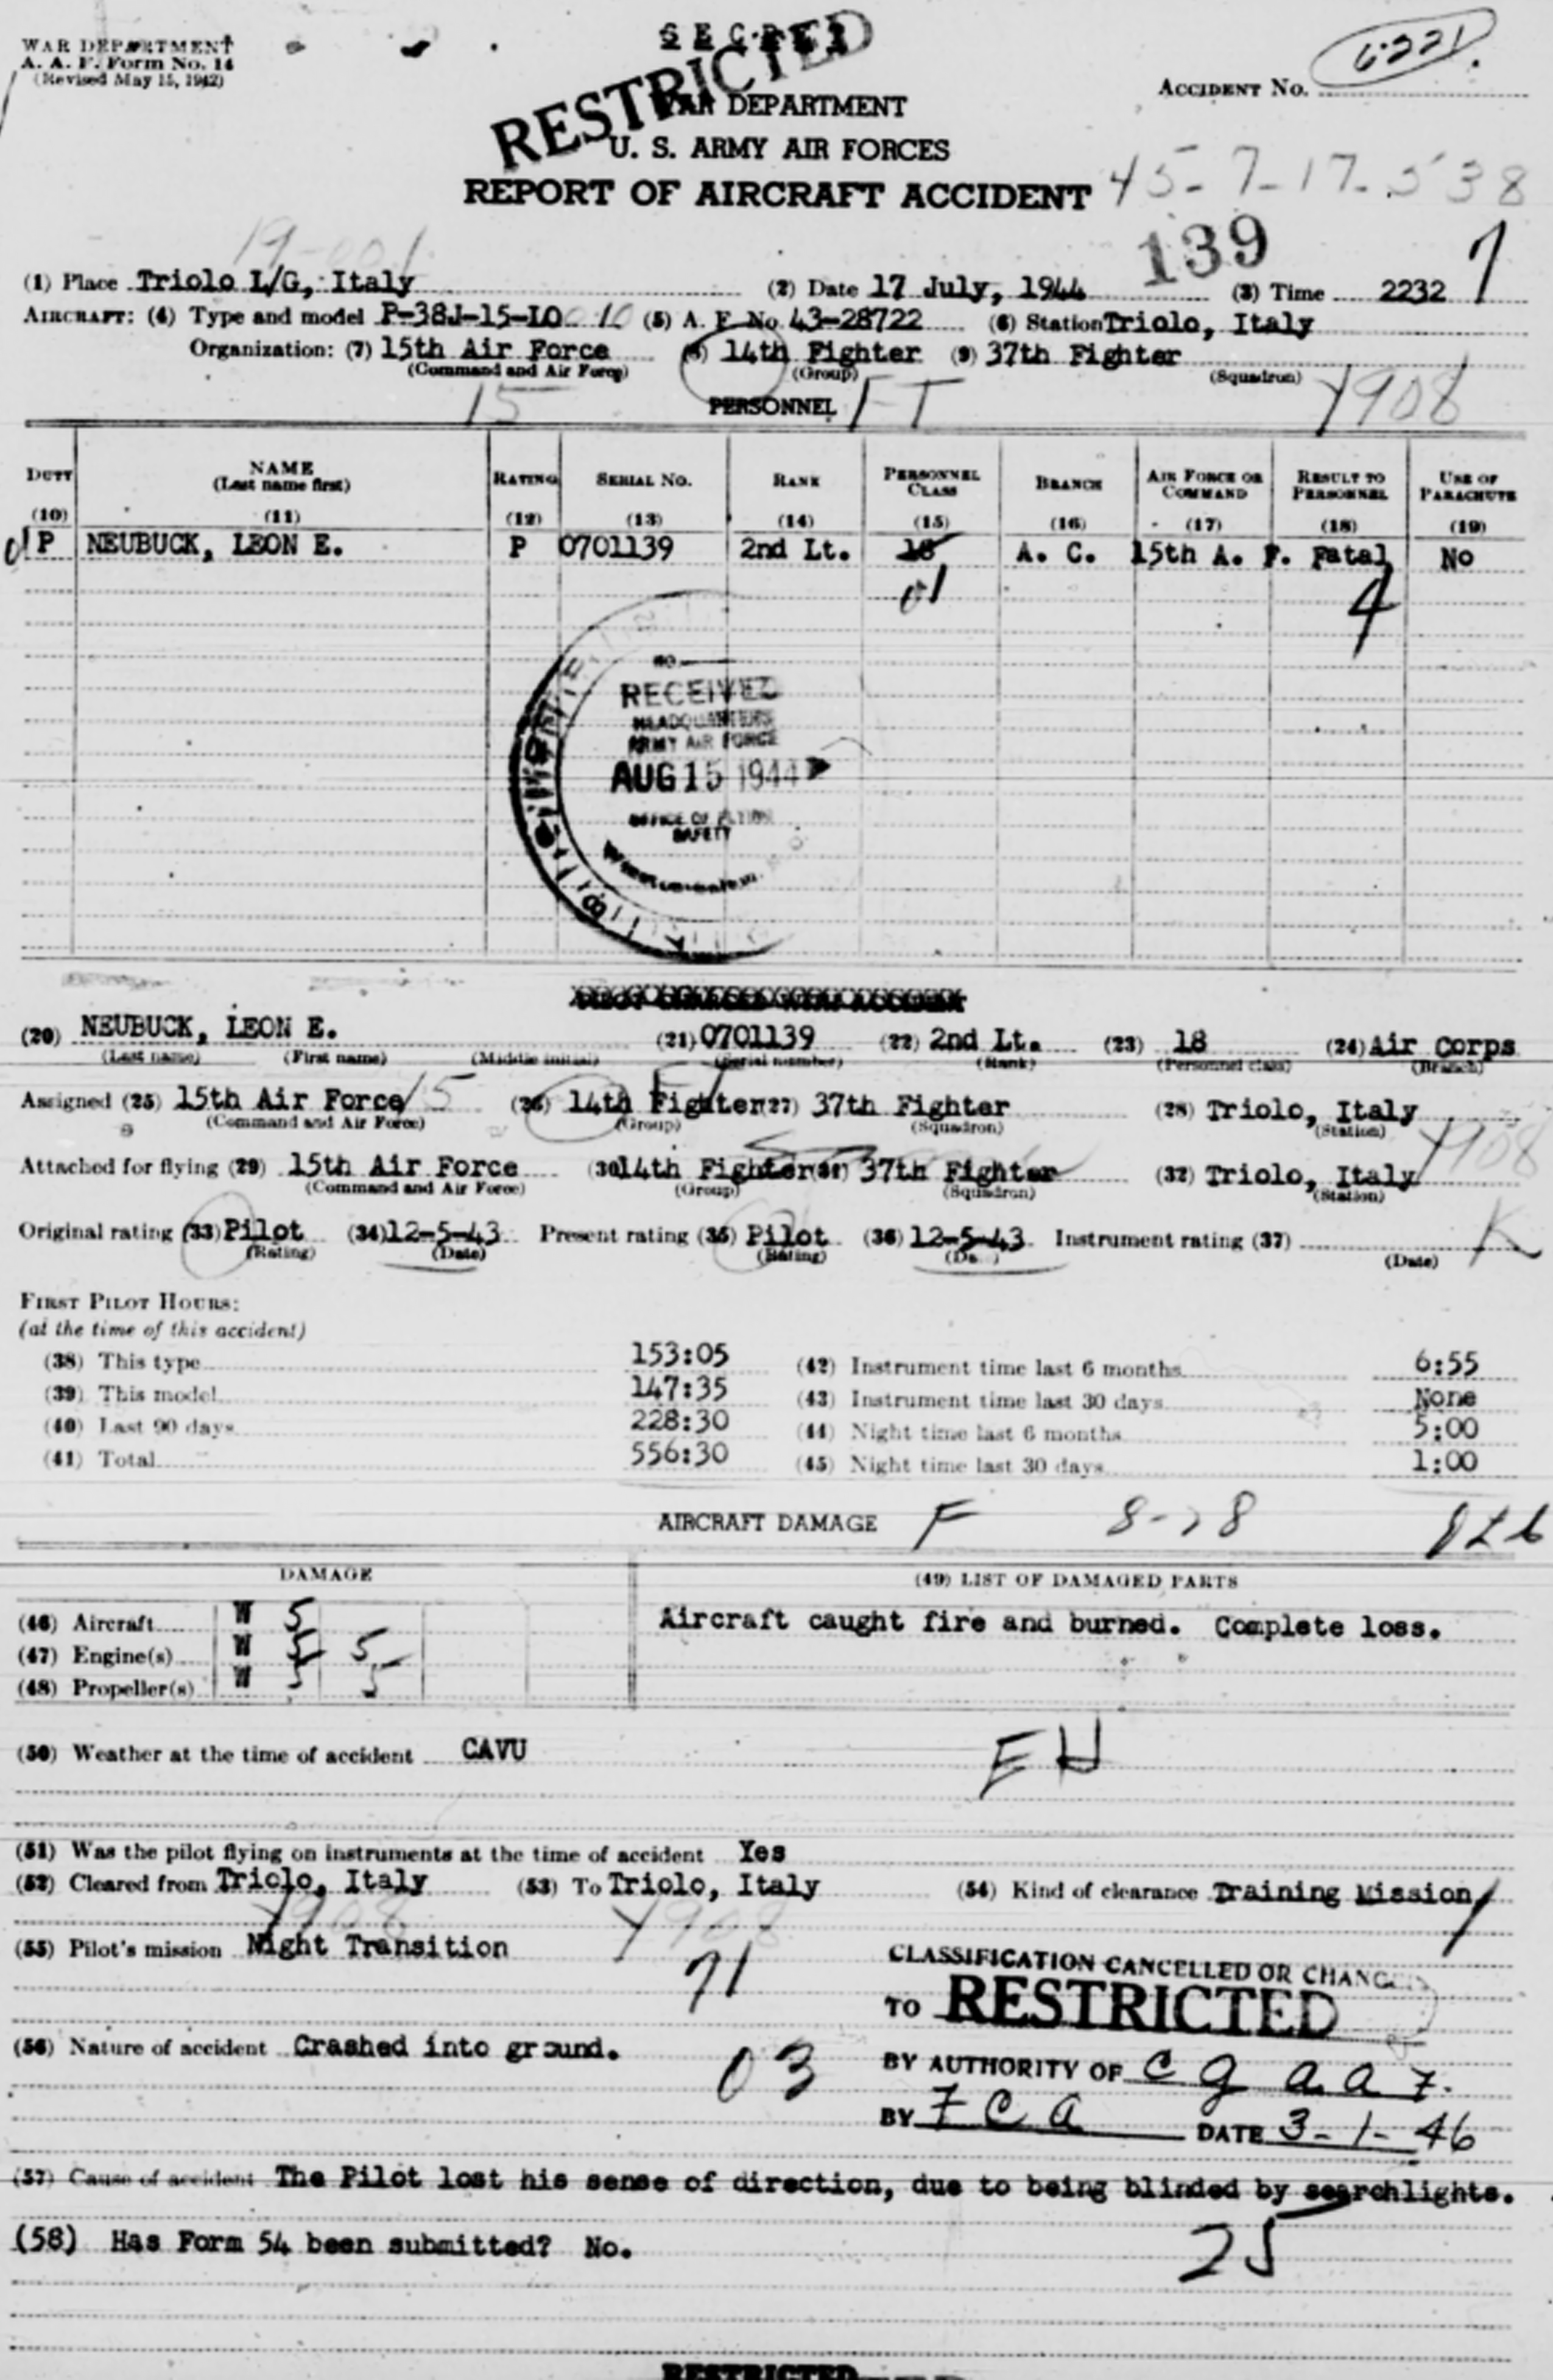 WAR DEPARTMENT
A. A. F. Form No. 14
(Revised May 15, 1942)
SECRET
RESTRICTED
ACCIDENT No. 6221
WAR DEPARTMENT
U. S. ARMY AIR FORCES
REPORT OF AIRCRAFT ACCIDENT 45-7-17-538
139 7
(1) Place Triolo L/G, Italy (2) Date 17 July, 1944 (3) Time 2232
AIRCRAFT: (4) Type and model P-38J-15-LO 10 (5) A. F. No. 43-28722 (6) Station Triolo, Italy
Organization: (7) 15th Air Force (8) 14th Fighter (9) 37th Fighter
(Command and Air Force) (Group) (Squadron)
15 PERSONNEL FT Y908
DUTY NAME (Last name first) RATING SERIAL NO. RANK PERSONNEL CLASS BRANCH AIR FORCE OR COMMAND RESULT TO PERSONNEL USE OF PARACHUTE
(10) (11) (12) (13) (14) (15) (16) (17) (18) (19)
01 P NEUBUCK, LEON E. P 0701139 2nd Lt. 18 A. C. 15th A. F. Fatal No
01 4
RECEIVED
HEADQUARTERS
ARMY AIR FORCE
AUG 15 1944
OFFICE OF FLYING
SAFETY
(20) NEUBUCK, LEON E. (21) 0701139 (22) 2nd Lt. (23) 18 (24) Air Corps
(Last name) (First name) (Middle initial) (Serial number) (Rank) (Personnel class) (Branch)
Assigned (25) 15th Air Force 15 (26) 14th Fighter (27) 37th Fighter (28) Triolo, Italy
(Command and Air Force) (Group) (Squadron) (Station)
Y908
Attached for flying (29) 15th Air Force (30) 14th Fighter (31) 37th Fighter (32) Triolo, Italy
(Command and Air Force) (Group) (Squadron) (Station)
Original rating (33) Pilot (34) 12-5-43 Present rating (35) Pilot (36) 12-5-43 Instrument rating (37) K
(Rating) (Date) (Rating) (Da ) (Date)
FIRST PILOT HOURS:
(at the time of this accident)
(38) This type 153:05 (42) Instrument time last 6 months 6:55
(39) This model 147:35 (43) Instrument time last 30 days None
(40) Last 90 days 228:30 (44) Night time last 6 months 5:00
(41) Total 556:30 (45) Night time last 30 days 1:00
AIRCRAFT DAMAGE F 8-28
DAMAGE (49) LIST OF DAMAGED PARTS
(46) Aircraft W 5 Aircraft caught fire and burned. Complete loss.
(47) Engine(s) W 5 5
(48) Propeller(s) W 5 5
(50) Weather at the time of accident CAVU
EH
(51) Was the pilot flying on instruments at the time of accident Yes
(52) Cleared from Triolo, Italy (53) To Triolo, Italy (54) Kind of clearance Training Mission
Y908 Y908
(55) Pilot's mission Night Transition
71
CLASSIFICATION CANCELLED OR CHANG
TO RESTRICTED
(56) Nature of accident Crashed into ground.
03
BY AUTHORITY OF C G A A F.
BY F C A DATE 3-1-46
(57) Cause of accident The Pilot lost his sense of direction, due to being blinded by searchlights.
(58) Has Form 54 been submitted? No.
25
RESTRICTED